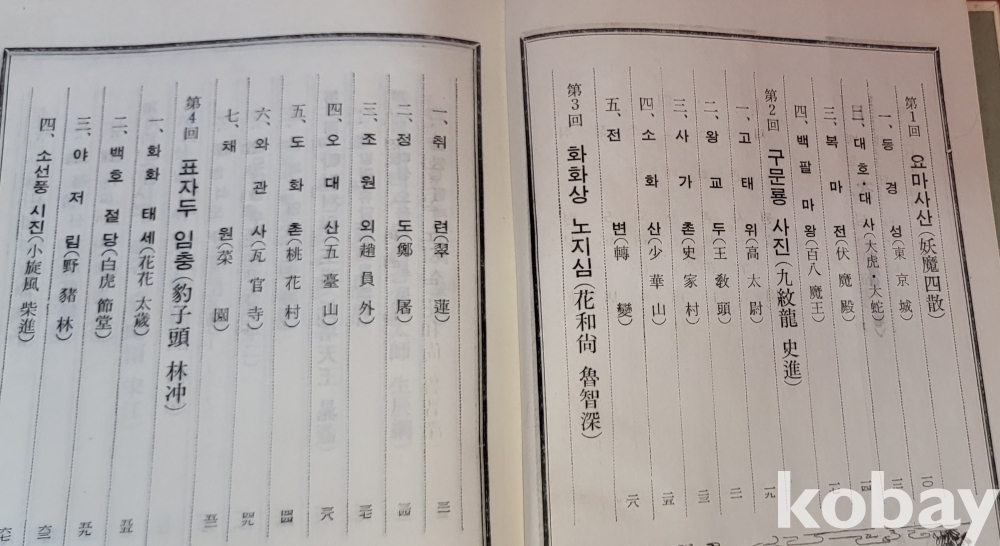 第1回 요마사산(妖魔四散) 一〇
一、동경성(東京城)
二、대호·대사(大虎·大蛇) 一四
三、복마전(伏魔殿)
四、백팔마왕(百八魔王)
第2回 구문룡 사진(九紋龍 史進) 一九
一、고태위(高太尉) 二一
二、왕교두(王敎頭) 二三
三、사가촌(史家村) 二三
四、소화산(少華山) 二五
五、전변(轉變) 二八
第3回 화화상 노지심(花和尙 魯智深)
一、취련(翠蓮)
二、정도(鄭屠) 三四
三、조원외(趙員外) 三七
四、오대산(五臺山) 三八
五、도화촌(桃花村) 四四
六、와관사(瓦官寺) 四九
七、채원(菜園) 五三
第4回 표자두 임충(豹子頭 林冲)
一、화화태세(花花太歲)
二、백호절당(白虎節堂) 五五
三、야저림(野豬林) 五九
四、소선풍 시진(小旋風 柴進) 六三
六七
kobay